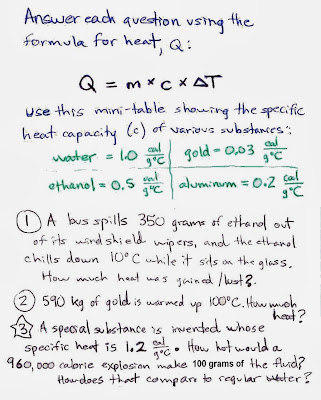 Answer each question using the
formula for heat, Q:
Q = m × c × ΔT
Use this mini-table showing the specific
heat capacity (c) of various substances:
water = 1.0 cal/g°C gold = 0.03 cal/g°C
ethanol = 0.5 cal/g°C aluminum = 0.2 cal/g°C
① A bus spills 350 grams of ethanol out
of its windshield wipers, and the ethanol
chills down 10°C while it sits on the glass.
How much heat was gained/lost?
② 590 kg of gold is warmed up 100°C. How much
heat?
③ A special substance is invented whose
specific heat is 1.2 cal/g°C. How hot would a
960,000 calorie explosion make 100 grams of the fluid?
How does that compare to regular water?